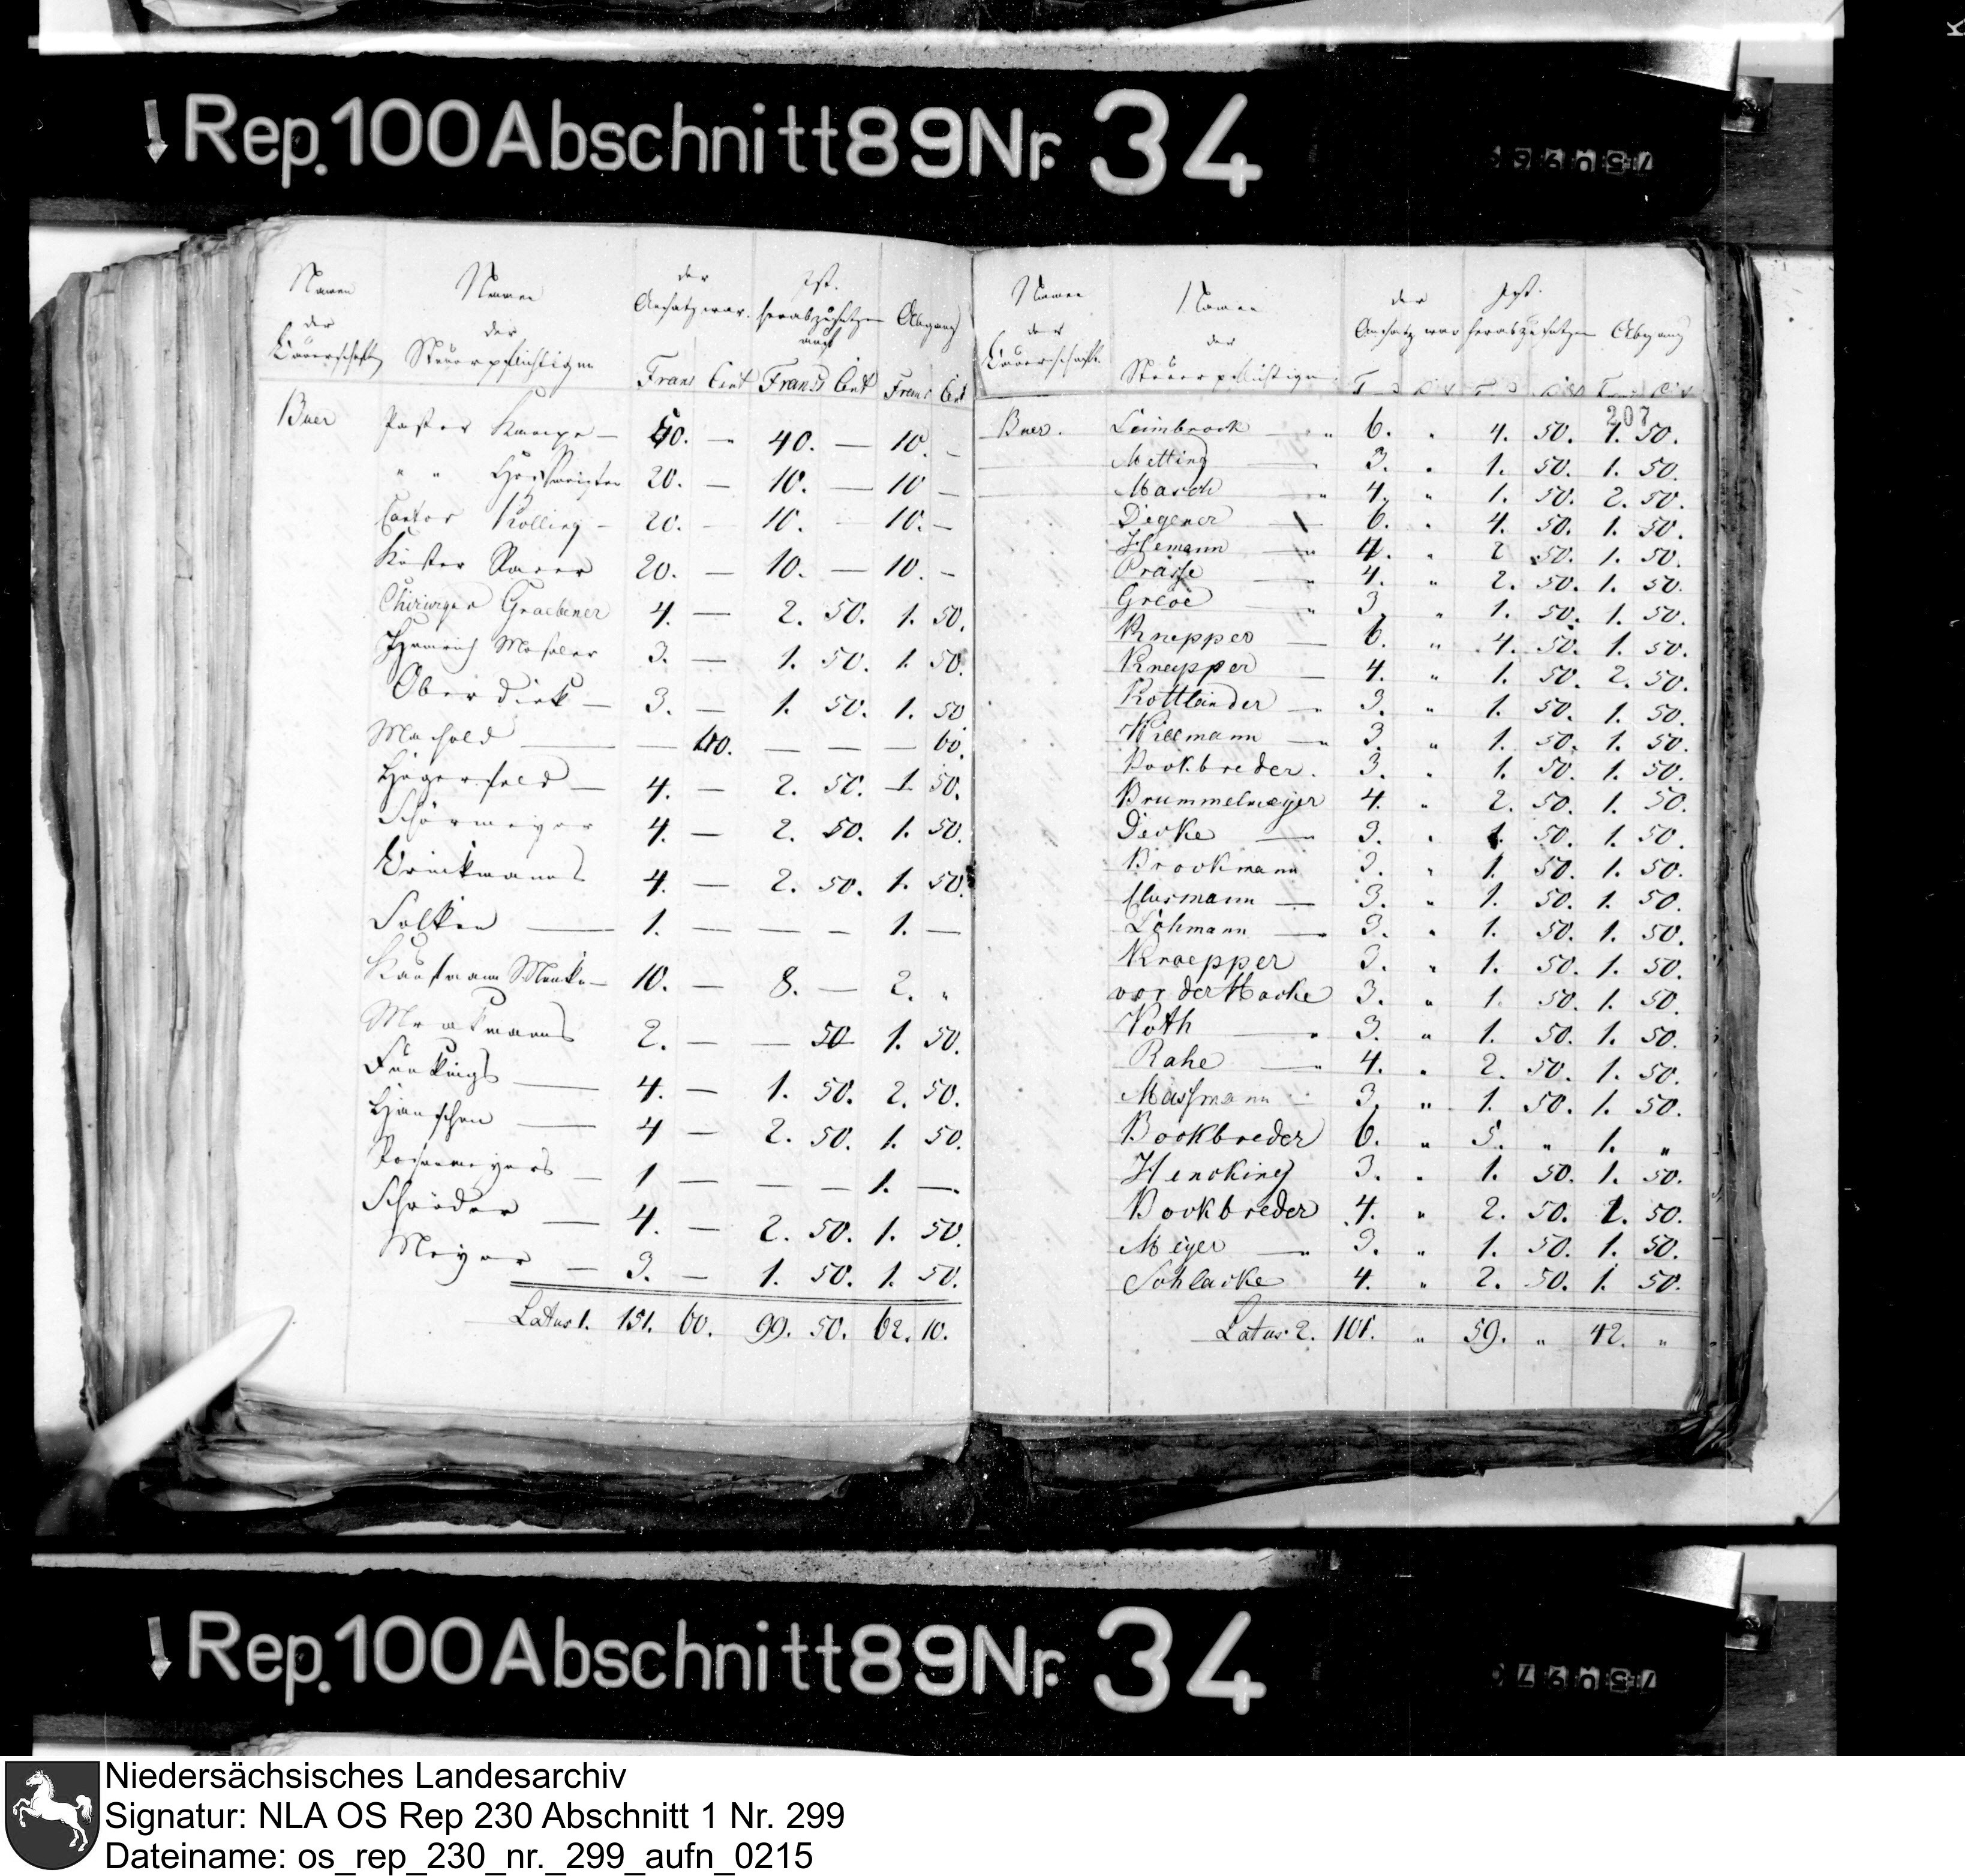 Rep. 100 Abschnitt 89 Nr. 34
Namen der Bauerschaft Namen der Steuerpflichtigen der Ansatz war. Ist. herabzusetzen auf Abgang
Frans Cent Francs Cent Frans Cent
Buer Pastor Kampe — 50. — 40. — 10. —
" " 20. — 10. — 10 —
Cantor Kolling — 20. — 10. — 10. —
Küster 20. — 10. — 10. —
Chirurgen Graebener 4. — 2. 50. 1. 50.
3. — 1. 50. 1. 50.
Oberdiek — 3. — 1. 50. 1. 50
— — 60. — — — 60.
4. — 2. 50. 1 50.
4. — 2. 50. 1. 50.
Brinkmanns 4. — 2. 50. 1. 50.
— 1. — — — 1. —
Kaufmann — 10. — 8. — 2. "
2. — — 50 1. 50.
Fünkings — 4. — 1. 50. 2. 50.
— 4 — 2. 50. 1. 50.
— 1 — — — 1. —
Schröder — 4. — 2. 50. 1. 50.
Meyer — 3. — 1. 50. 1. 50.
Latus 1. 151. 60. 99. 50. 62. 10.
Namen der Bauerschaft. Namen der Steuerpflichtigen der Ansatz war Ist. herabzusetzen Abgang
207
Buer. Leimbrock — " 6. " 4. 50. 1. 50.
Metting — 3. " 1. 50. 1. 50.
Masch " 4. " 1. 50. 2. 50.
Degener — 6. " 4. 50. 1. 50.
Hemann — " 4. " 2 50. 1. 50.
Prasse — " 4. " 2. 50. 1. 50.
Greve " 3. " 1. 50. 1. 50.
Knepper — 6. " 4. 50. 1. 50.
Knepper — 4. " 1. 50. 2. 50.
Kottlander — " 3. " 1. 50. 1. 50.
Killmann — " 3. " 1. 50. 1. 50.
Bookbreder. 3. " 1. 50. 1. 50.
Brummelmeijer 4. " 2. 50. 1. 50.
Derke — 3. " 1. 50. 1. 50.
Brookmann 3. " 1. 50. 1. 50.
Clusmann — 3. " 1. 50. 1. 50.
Löhmann — " 3. " 1. 50. 1. 50.
Kraepper 3. " 1. 50. 1. 50.
vor der Hacke 3. " 1. 50. 1. 50.
Voth — " 3. " 1. 50. 1. 50.
Rahe — " 4. " 2. 50. 1. 50.
Massmann — 3. " 1. 50. 1. 50.
Bookbreder 6. " 5. " 1. "
Hencking 3. " 1. 50. 1. 50.
Bookbreder 4. " 2. 50. 1. 50.
Meyer — " 3. " 1. 50. 1. 50.
Schlacke 4. " 2. 50. 1. 50.
Latus 2. 101. " 59. " 42. "
Rep. 100 Abschnitt 89 Nr. 34
Niedersächsisches Landesarchiv
Signatur: NLA OS Rep 230 Abschnitt 1 Nr. 299
Dateiname: os_rep_230_nr._299_aufn_0215